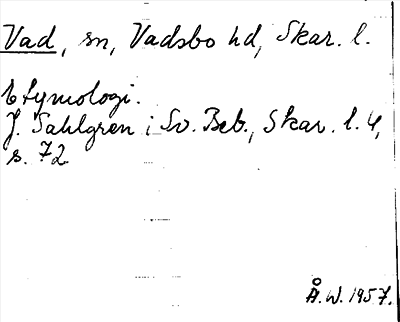 Vad, sn, Vadsbo hd, Skar. l.
Etymologi.
J. Sahlgren i Sv. Beb., Skar. l. 4,
s. 72
Å. W. 1957.